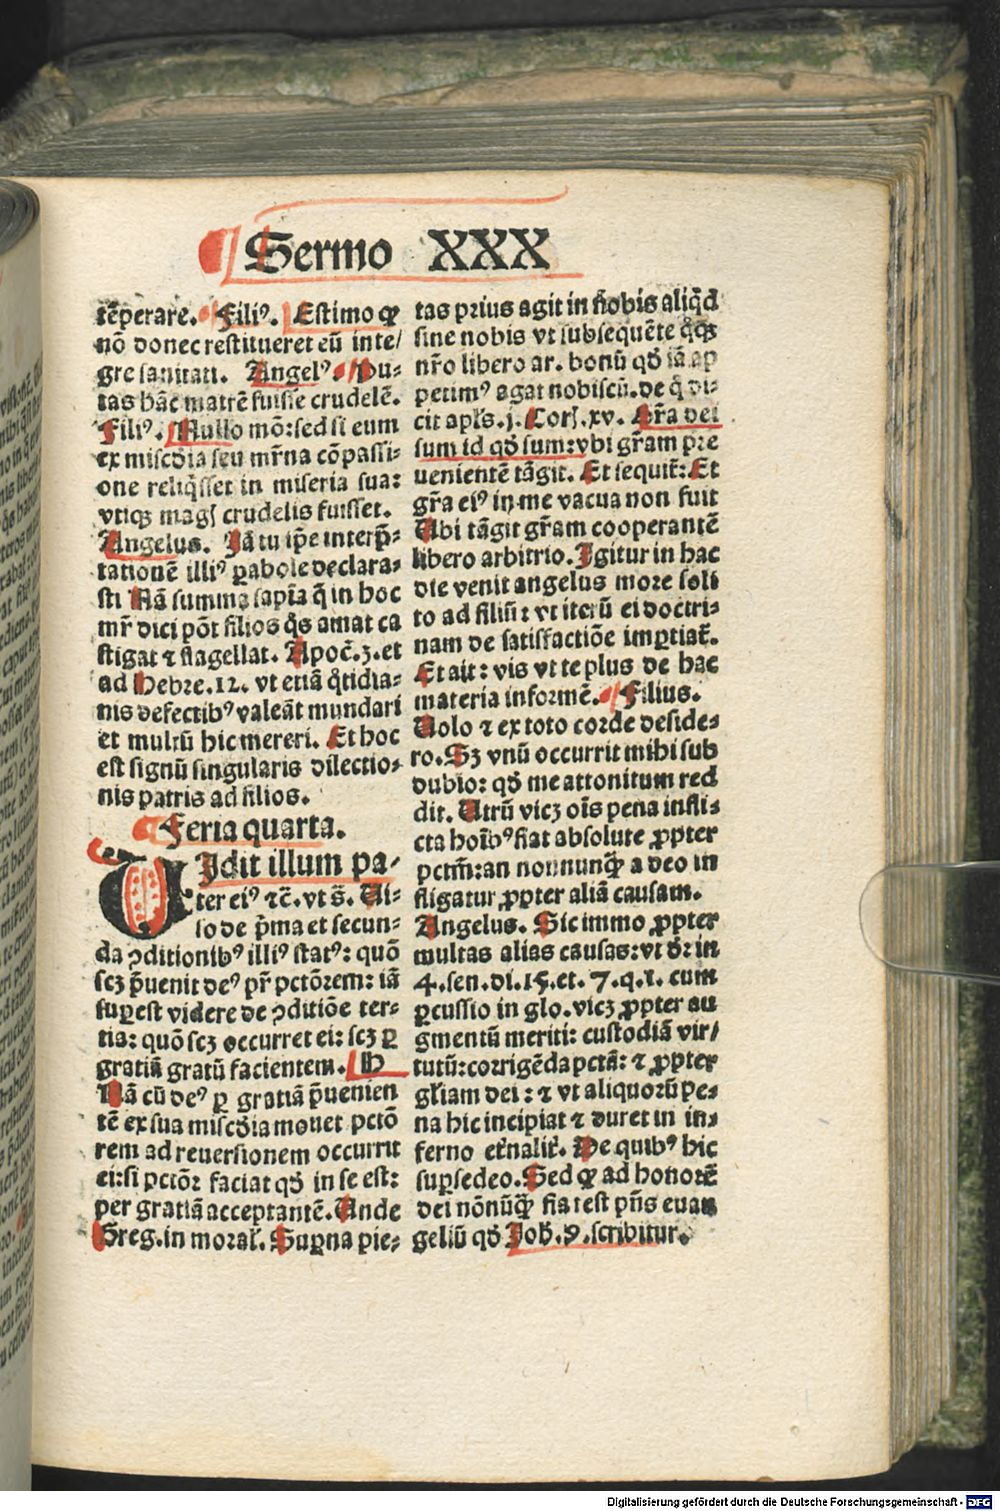 Sermo XXX
tēperare. Filiꝰ. Estimo ꝙ
nō donec restitueret eū inte/
gre sanitati. Angelꝰ. Pu-
tas hāc matrē fuisse crudelē.
Filiꝰ. Nullo mō: sed si eum
ex miscd̄ia seu mr̄na cōpassi-
one reliq̄sset in miseria sua:
vtiqꝫ magꝭ crudelis fuisset.
Angelus. Jā tu ip̄e interp̄-
tationē illiꝰ ꝑabole declara-
sti Nā summa sapīa q̄ in hoc
mr̄ dici pōt filios q̄s amat ca
stigat ⁊ flagellat. Apoc̄. 3. et
ad Hebre. 12. vt etiā q̄tidia-
nis defectibꝰ valeāt mundari
et multū hic mereri. Et hoc
est signū singularis dilectio-
nis patris ad filios.
Feria quarta.
VJdit illum pa-
ter eiꝰ ⁊c̄. vt s̄. Vi-
so de p̄ma et secun-
da ꝯditionibꝰ illiꝰ statꝰ: quō
scꝫ p̄uenit deꝰ pr̄ pctōrem: iā
suꝑest videre de ꝯditiōe ter-
tia: quō scꝫ occurret ei: scꝫ ꝑ
gratiā gratū facientem. H
Nā cū deꝰ ꝑ gratiā p̄uenien
tē ex sua miscd̄ia mouet pctō
rem ad reuersionem occurrit
ei: si pctōr faciat qd̄ in se est:
per gratiā acceptantē. Unde
Greg. in moral̄. Suꝑna pie-
tas prius agit in nobis aliqd̄
sine nobis vt subsequēte q̄qꝫ
nr̄o libero ar. bonū qd̄ iā ap
petimꝰ agat nobiscū. de q̄ di-
cit apl̄s. j. Corꝭ. xv. Gr̄a dei
sum id qd̄ sum: vbi gr̄am pre
uenientē tāgit. Et sequit̄: Et
gr̄a eiꝰ in me vacua non fuit
Ubi tāgit gr̄am cooperantē
libero arbitrio. Igitur in hac
die venit angelus more soli
to ad filiū: vt iterū ei doctri-
nam de satisfactiōe imꝑtiat̄.
Et ait: vis vt te plus de hac
materia informē. Filius.
Uolo ⁊ ex toto corde deside-
ro. Sꝫ vnū occurrit mihi sub
dubio: qd̄ me attonitum red
dit. Utrū vicꝫ oīs pena infli-
cta hoībꝰ fiat absolute ꝓpter
pctm̄: an nonnunqꝫ̄ a deo in
fligatur ꝓpter aliā causam.
Angelus. Sic immo ꝓpter
multas alias causas: vt dr̄ in
4. sen. di. 15. et. 7. q. 1. cum
ꝑcussio in glo. vicꝫ ꝓpter au
gmentū meriti: custodiā vir/
tutū: corrigēda pctā: ⁊ ꝓpter
gl̄iam dei: ⁊ vt aliquorū pe-
na hic incipiat ⁊ duret in in-
ferno et̄nalit̄. De quibꝰ hic
suꝑsedeo. Sed ꝙ ad honorē
dei nōnūqꝫ̄ fiat est pn̄s euan
geliū qd̄ Joh̄. 9. scribitur.
Digitalisierung gefördert durch die Deutsche Forschungsgemeinschaft - DFG